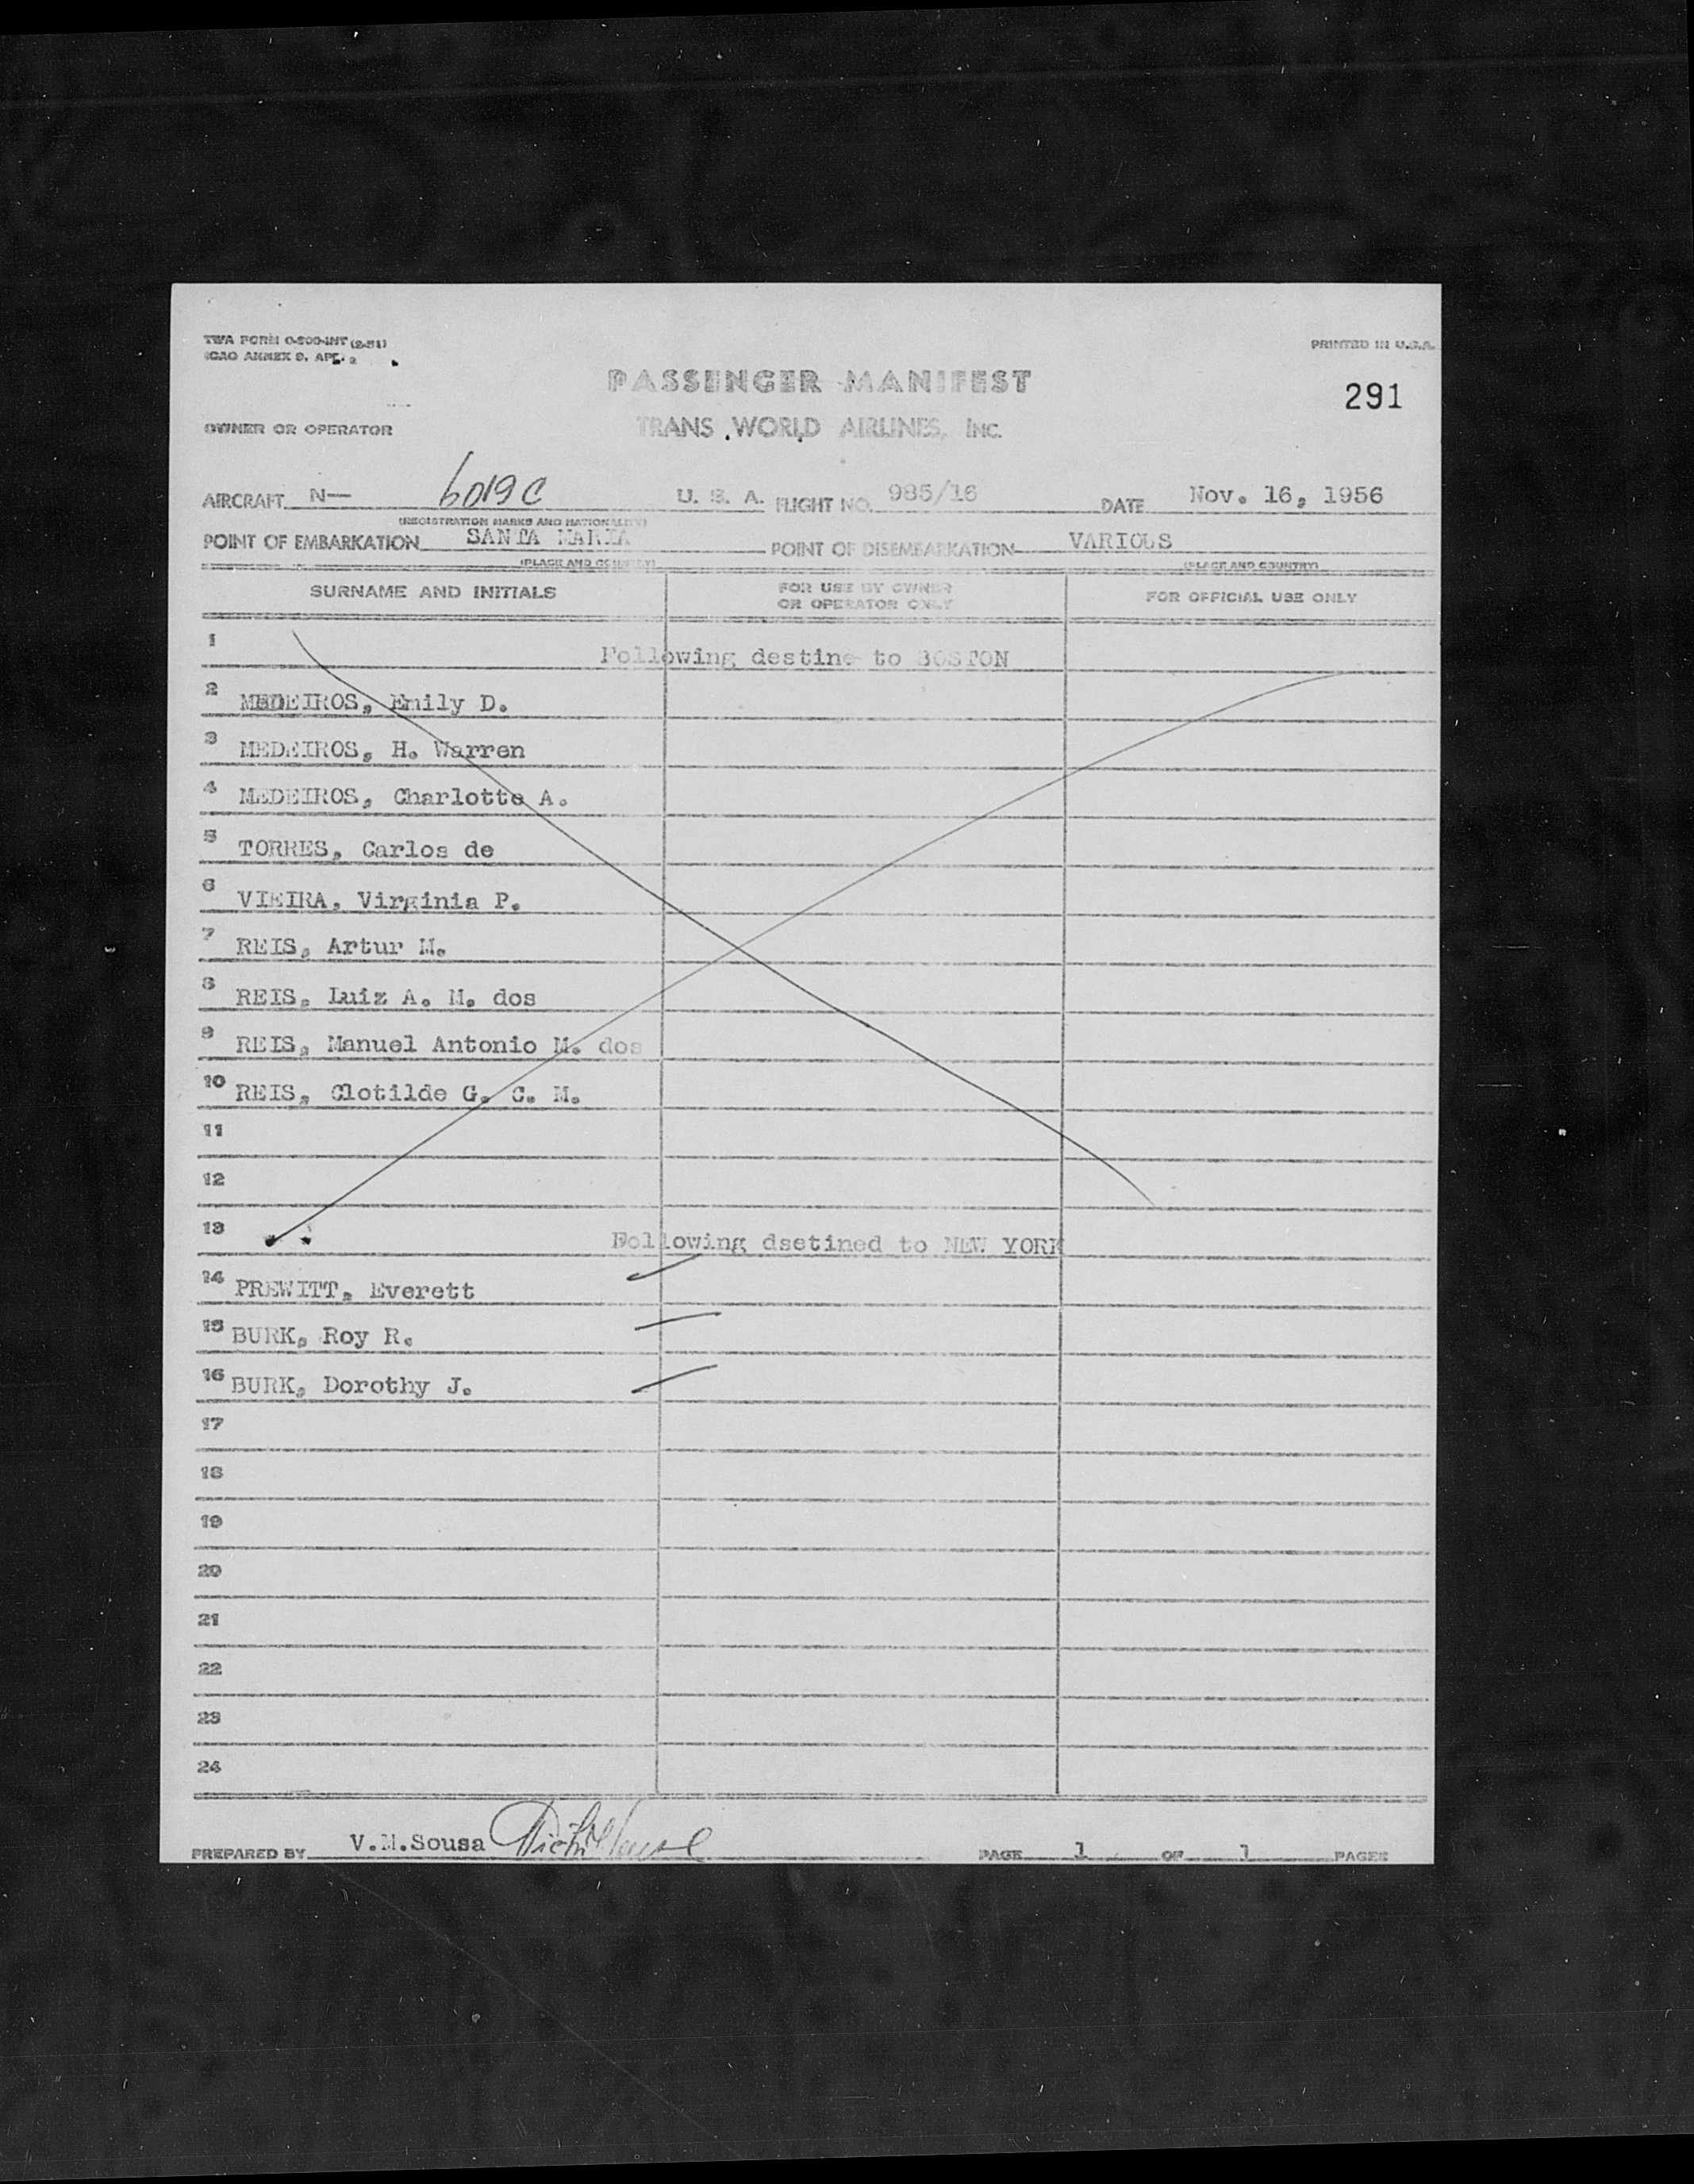 TWA FORM O-800-INT (2-51)
ICAO ANNEX 9, APP. 2
PRINTED IN U.S.A.
PASSENGER MANIFEST
291
OWNER OR OPERATOR TRANS WORLD AIRLINES, INC.
AIRCRAFT N— 6019C U. S. A. FLIGHT NO. 985/16 DATE Nov. 16, 1956
(REGISTRATION MARKS AND NATIONALITY)
POINT OF EMBARKATION SANTA MARIA POINT OF DISEMBARKATION VARIOUS
(PLACE AND COUNTRY) (PLACE AND COUNTRY)
SURNAME AND INITIALS FOR USE BY OWNER OR OPERATOR ONLY FOR OFFICIAL USE ONLY
1 Following destine to BOSTON
2 MEDEIROS, Emily D.
3 MEDEIROS, H. Warren
4 MEDEIROS, Charlotte A.
5 TORRES, Carlos de
6 VIEIRA, Virginia P.
7 REIS, Artur M.
8 REIS, Luiz A. M. dos
9 REIS, Manuel Antonio M. dos
10 REIS, Clotilde G. C. M.
11
12
13 Following dsetined to NEW YORK
14 PREWITT, Everett
15 BURK, Roy R.
16 BURK, Dorothy J.
17
18
19
20
21
22
23
24
PREPARED BY V.M.Sousa PAGE 1 OF 1 PAGES